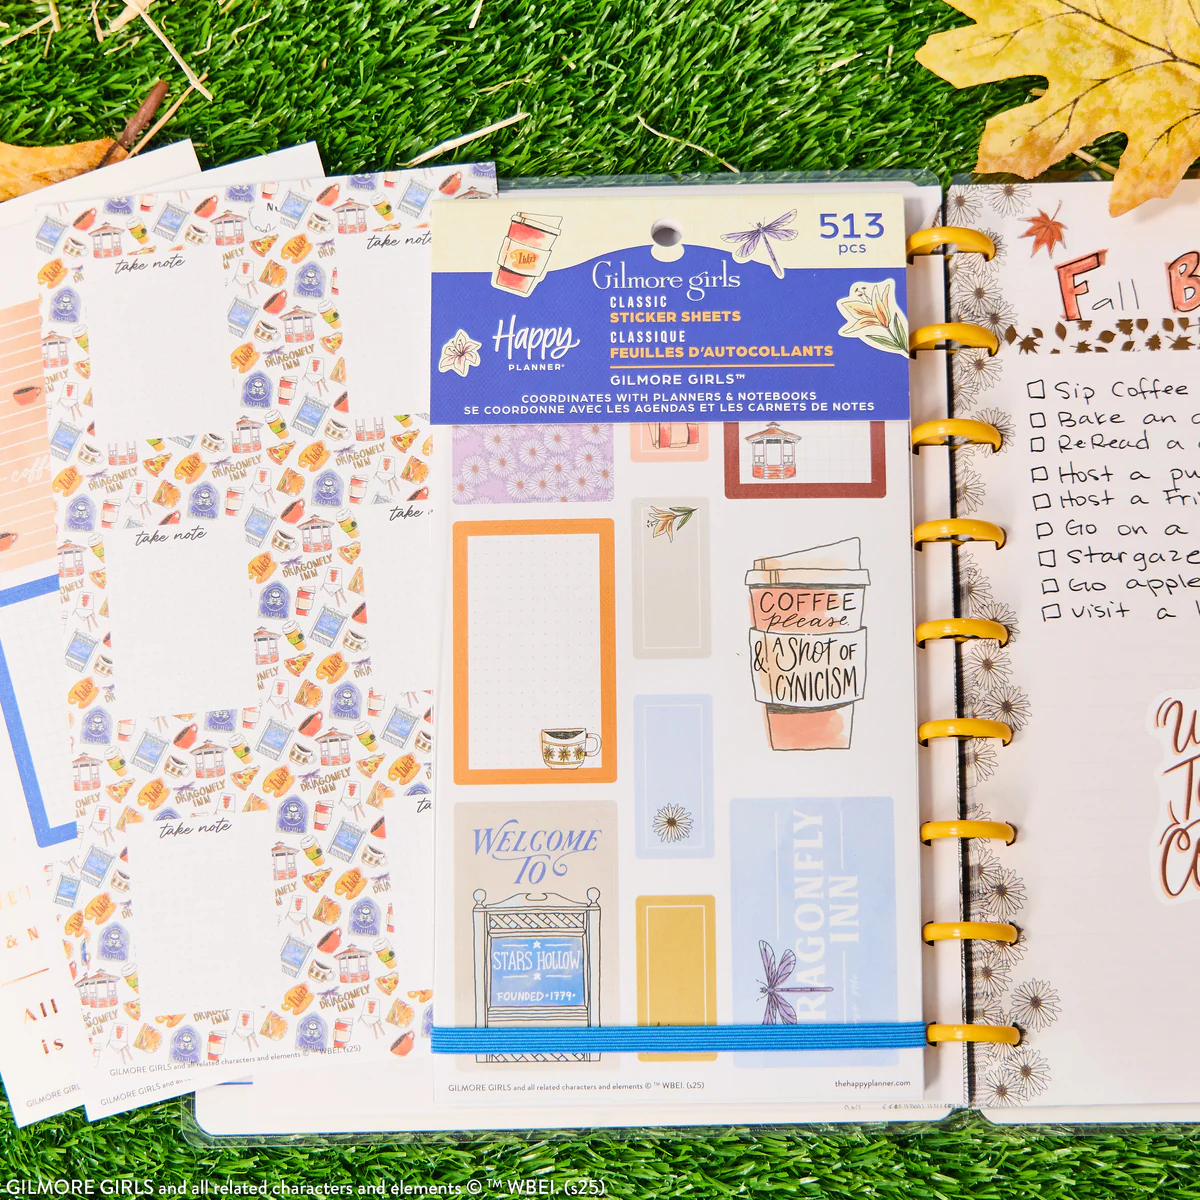 take note
take note
take note
take note
take note
GILMORE GIRLS and all related characters and elements © ™ WBEI. (s25)
513
pcs
Luke's
Gilmore girls
CLASSIC
STICKER SHEETS
Happy
PLANNER®
CLASSIQUE
FEUILLES D'AUTOCOLLANTS
GILMORE GIRLS™
COORDINATES WITH PLANNERS & NOTEBOOKS
SE COORDONNE AVEC LES AGENDAS ET LES CARNETS DE NOTES
COFFEE
please
& A SHOT OF
CYNICISM
WELCOME
TO
STARS HOLLOW
FOUNDED • 1779 •
DRAGONFLY
INN
GILMORE GIRLS and all related characters and elements © ™ WBEI. (s25)
thehappyplanner.com
Fall B
Sip Coffee
Bake an
ReRead a
Host a
Host a
Go on a
Stargaze
Go apple
Visit a
All
is
GILMORE GIRLS and all related characters and elements © ™ WBEI. (s25)